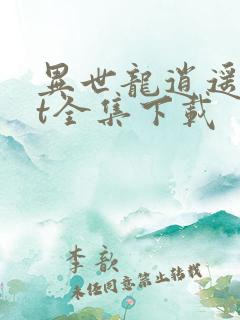 異世龍逍遥
t全集下載
李歆
未经同意禁止转载